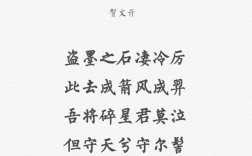 贺文亓
盗墨之石凄冷厉
此去成箭风成羿
吾将碎星君莫泣
但守天兮守尔髻